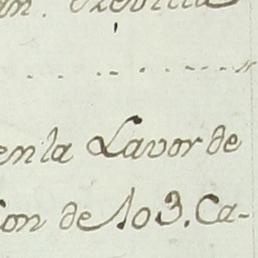 en la Lavor de
con de 103. Ca-